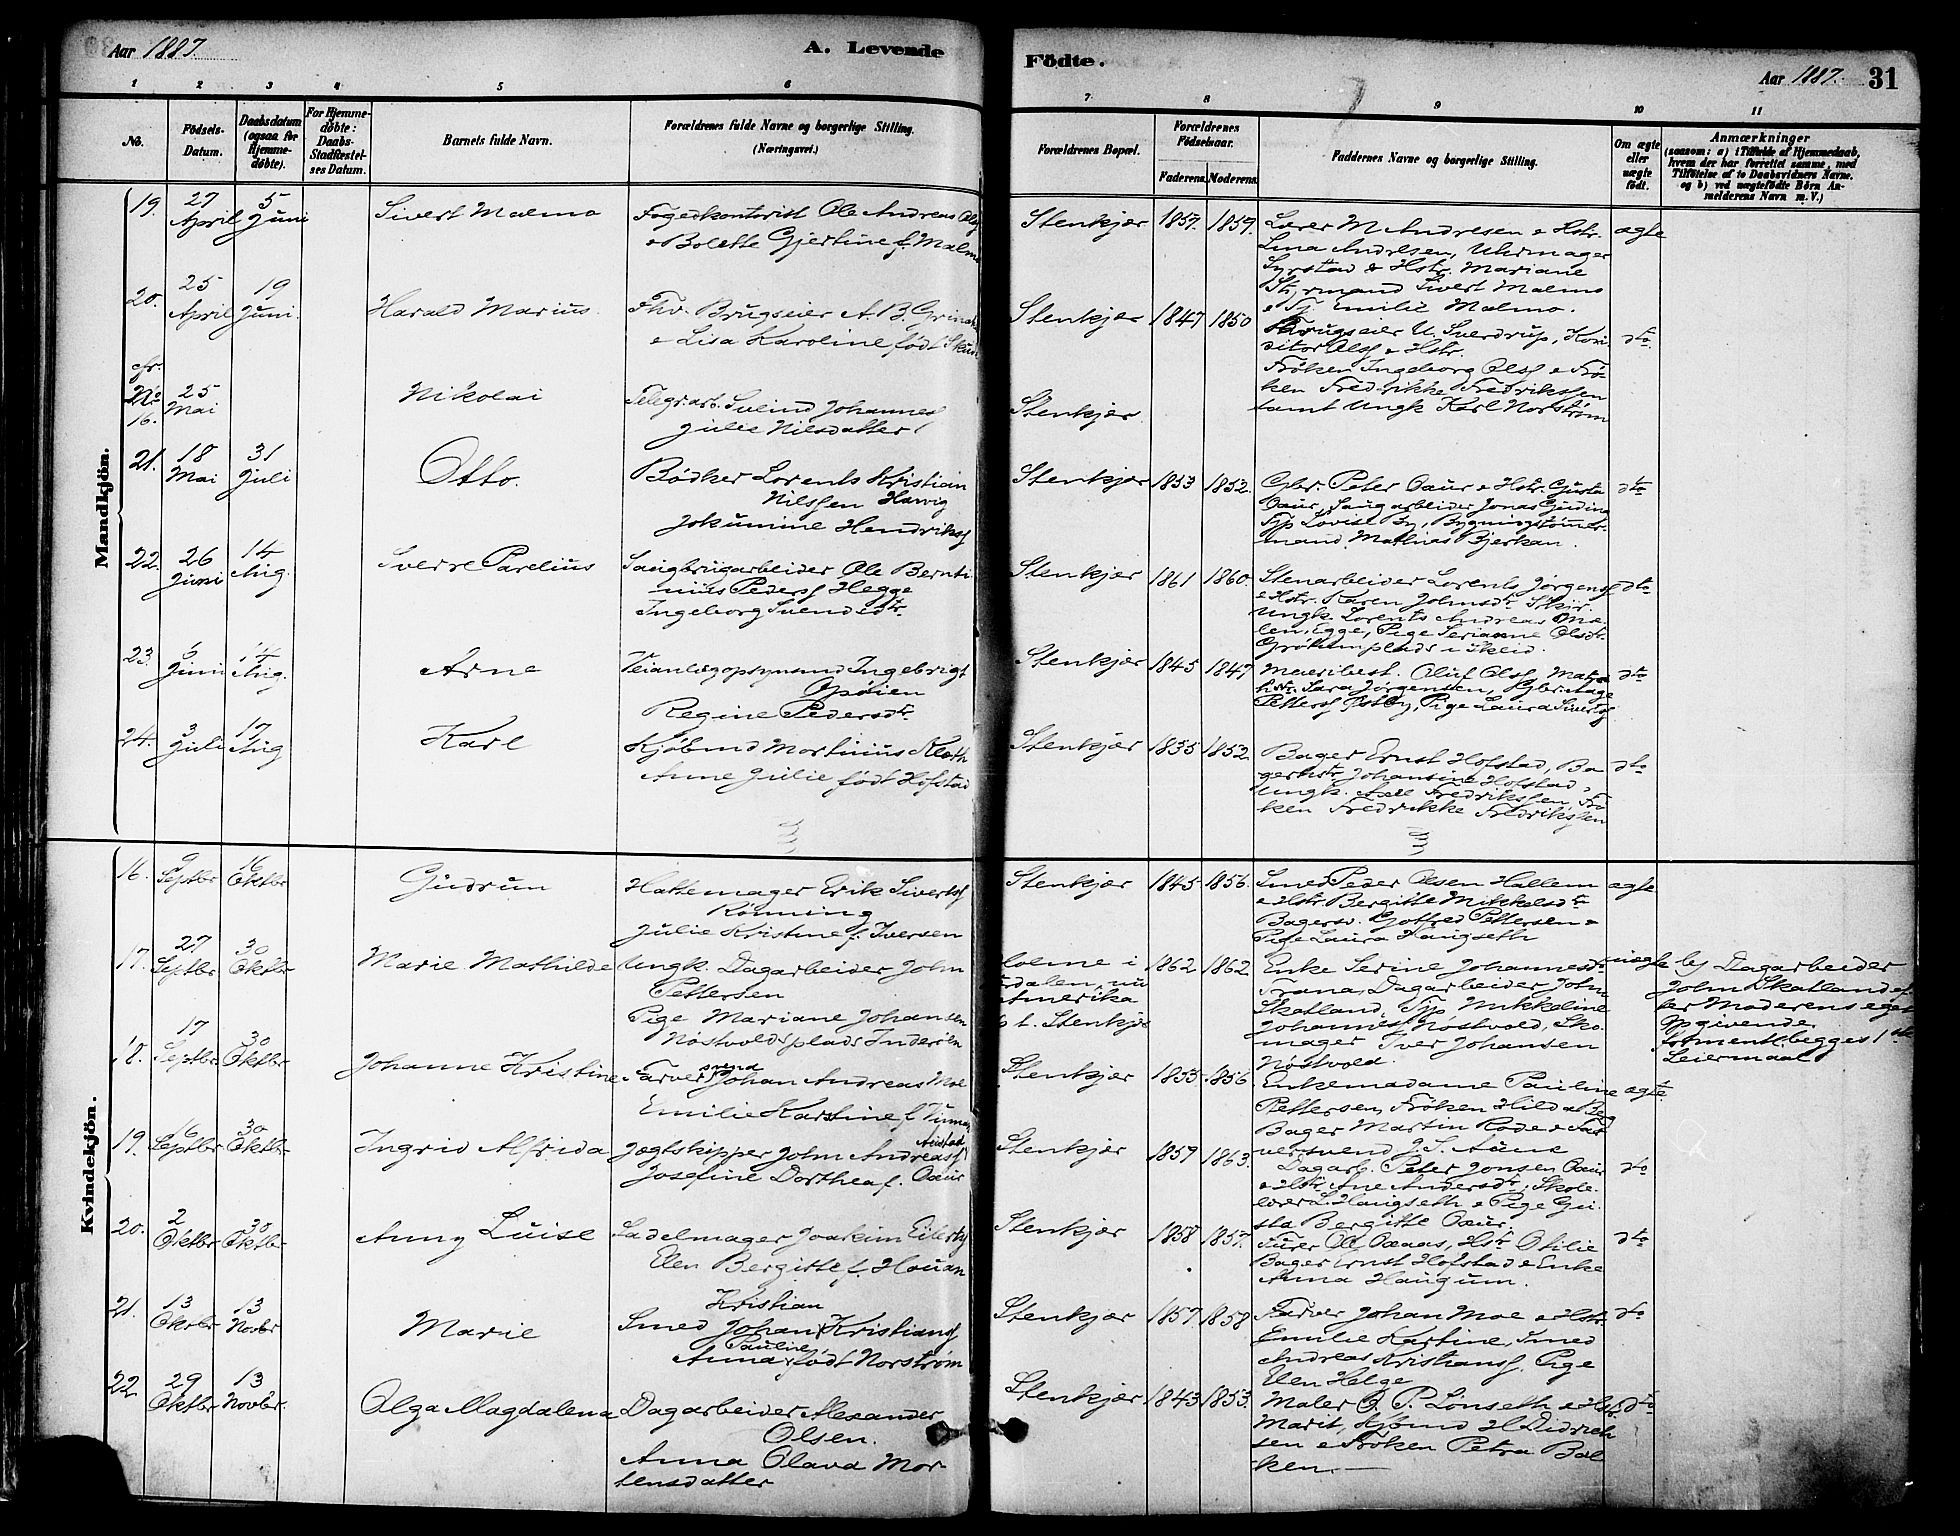 Aar 1887.
A. Levende
Födte.
Aar 1887.
31
1 2 3 4 5 6 7 8 9 10 11
No.
Födsels-Datum.
Daabsdatum (ogsaa for Hjemme-döbte).
For Hjemme-döbte: Daabs-Stadfæstel-ses Datum.
Barnets fulde Navn.
Forældrenes fulde Navne og borgerlige Stilling.
(Næringsvei.)
Forældrenes Bopæl.
Forældrenes Födselsaar.
Faderens. Moderens.
Faddernes Navne og borgerlige Stilling.
Om ægte eller uægte födt.
Anmærkninger
(saasom: a) i Tilfælde af Hjemmedaab,
hvem der har forrettet samme, med
Tilföielse af to Daabsvidners Navne.
og b) ved uægtefödte Börn An-
melderens Navn m.V.)
Mandkjön.
19. 27 April 5 Juni Sivert Malmo
Fogedkontorist Ole Andreas
& Bolette Gjertine f. Malmo
Stenkjær 1857. 1859.
Lærer M Andresen & Hstr.
Lina Andresen, Uhrmager
Syrstad & Hstr. Mariane
Styrmand Sivert Malmo
Emilie Malmo.
ægte
20. 25 April 19 Juni. Harald Marius.
Fhv. Brugseier A. B.
& Lisa Karoline født
Stenkjær 1847 1850
Brugseier U. Sverdrup, Kon
ditor Olss & Hstr.
Frøken Ingeborg Olss & Frø
ken Fredrikke Fredrikssen
samt Ungk. Karl Norstrøm
dto.
cfr. No 16. 25 Mai Nikolai
Telegr.arb. Svend Johanness
Julie Nilsdatter
Stenkjær.
21. 18 Mai 31 Juli Otto.
Bødker Lorents Kristian
Nilssen
Jokumine Hendriks
Stenkjær 1853 1852.
Gbr. Peter Oaur & Hstr. Gusta
Oaur, Saugarbeider Jonas
Lovise By, Bygningstømmer
mand Mathias Bjerkan.
dto
22. 26 Juni 14 Aug. Sverre Parelius
Saugbrugarbeider Ole Bernti
nius Peders Hegge
Ingeborg Svendsdtr.
Stenkjær 1861 1860.
Stenarbeider Lorents Jørgens
& Hstr. Karen Johnsdtr.
Ungk. Lorents Andreas Mæ
len, Egge, Pige Serianne Olsdtr.
dto
23. Juni 14 Aug. Arne
Veianlægopsynsmd Ingebrigt
Opøien
Regine Pedersdtr.
Stenkjær 1845 1847
Meieribest. Oluf Olss
Sara Jørgensen,
Petters Østby, Pige Laura Siverts
dto
24. 3 Juli 17 Aug Karl
Kjøbmd Martinius Kleth
Anne Julie født Hofstad
Stenkjær 1835 1852
Bager Ernst Hofstad, Ba
gerhstr. Johansine Hofstad,
Ungk. Axel Fredrikssen, Frø
ken Fredrikke Fredrikssen
dto
Kvindekjön.
16. 9 Septbr 16 Oktbr Gudrun
Hattemager Erik Siverts
Rønning
Julie Kristine f. Iversen
Stenkjær 1845 1856.
Smed Peder Olsen Hallem
& Hstr. Bergitte Mikkelsdtr
Bagersv. Gotfred Pettersen &
Pige Laura Haugseth
ægte
17. 27 Septbr 30 Oktbr Marie Mathilde
Ungk. Dagarbeider John
Pettersen
Pige Mariane Johansen
Nøstvoldsplads Inderøen
Holme i
Værdalen, nu
Amerika
p. t. Stenkjær
1862 1862
Enke Serine Johannesdtr
Trana, Dagarbeider John
Skatland, Mikkeline
Johannesdtr Nøstvold, Sko
mager Iver Johansen
Nøstvold.
uægte
b) Dagarbeider
John Skatland ef-
ter Moderens eget
Opgivende.
begges 1ste
Leiermaal
18. 17 Septbr 30 Oktbr Johanne Kristine
Farversvend Johan Andreas Moe
Emilie Karstine f.
Stenkjær 1855 1856
Enkemadame Pauline
Pettersen, Frøken Hilda Berg
Bager Martin Rode & Far
versvend J. S. Aune
ægte.
19. 16 Septbr 30 Oktbr. Ingrid Alfrida
Jægtskipper John Andreass
Josefine Dorthea f. Oaur
Stenkjær 1857 1863.
Dagarb. Peter Jonsen Oaur
& Hstr Ane Andersdtr, Skole
lærer L. Haugseth & Pige Gu
sta Bergitte Oaur.
dto
20. 2 Oktbr 30 Oktbr. Anny Luise
Sadelmager Joakim Eilerts
Elen Bergitte f. Hauan
Stenkjær 1858 1857.
Furer Ole Hstr Otilie
Bager Ernst Hofstad & Enke
Anna Haugum.
dto
21. 13 Oktbr 13 Novbr Marie
Smed Johan Kristian Kristians
Anna Pauline født Norstrøm
Stenkjær 1857 1858
Farver Johan Moe & Hstr.
Emilie Karstine, Smed
Andreas Kristians. Pige
Elen Helge
dto
22 29 Oktbr 13 Novbr. Olga Magdalena
Dagarbeider Alexander
Olsen.
Anna Olava Mor
tensdatter
Stenkjær 1843 1853.
Maler O. P. Lønseth & Hstr.
Marit, Kjøbmd H Didrich
sen & Frøken Petra Bal
ken.
dto